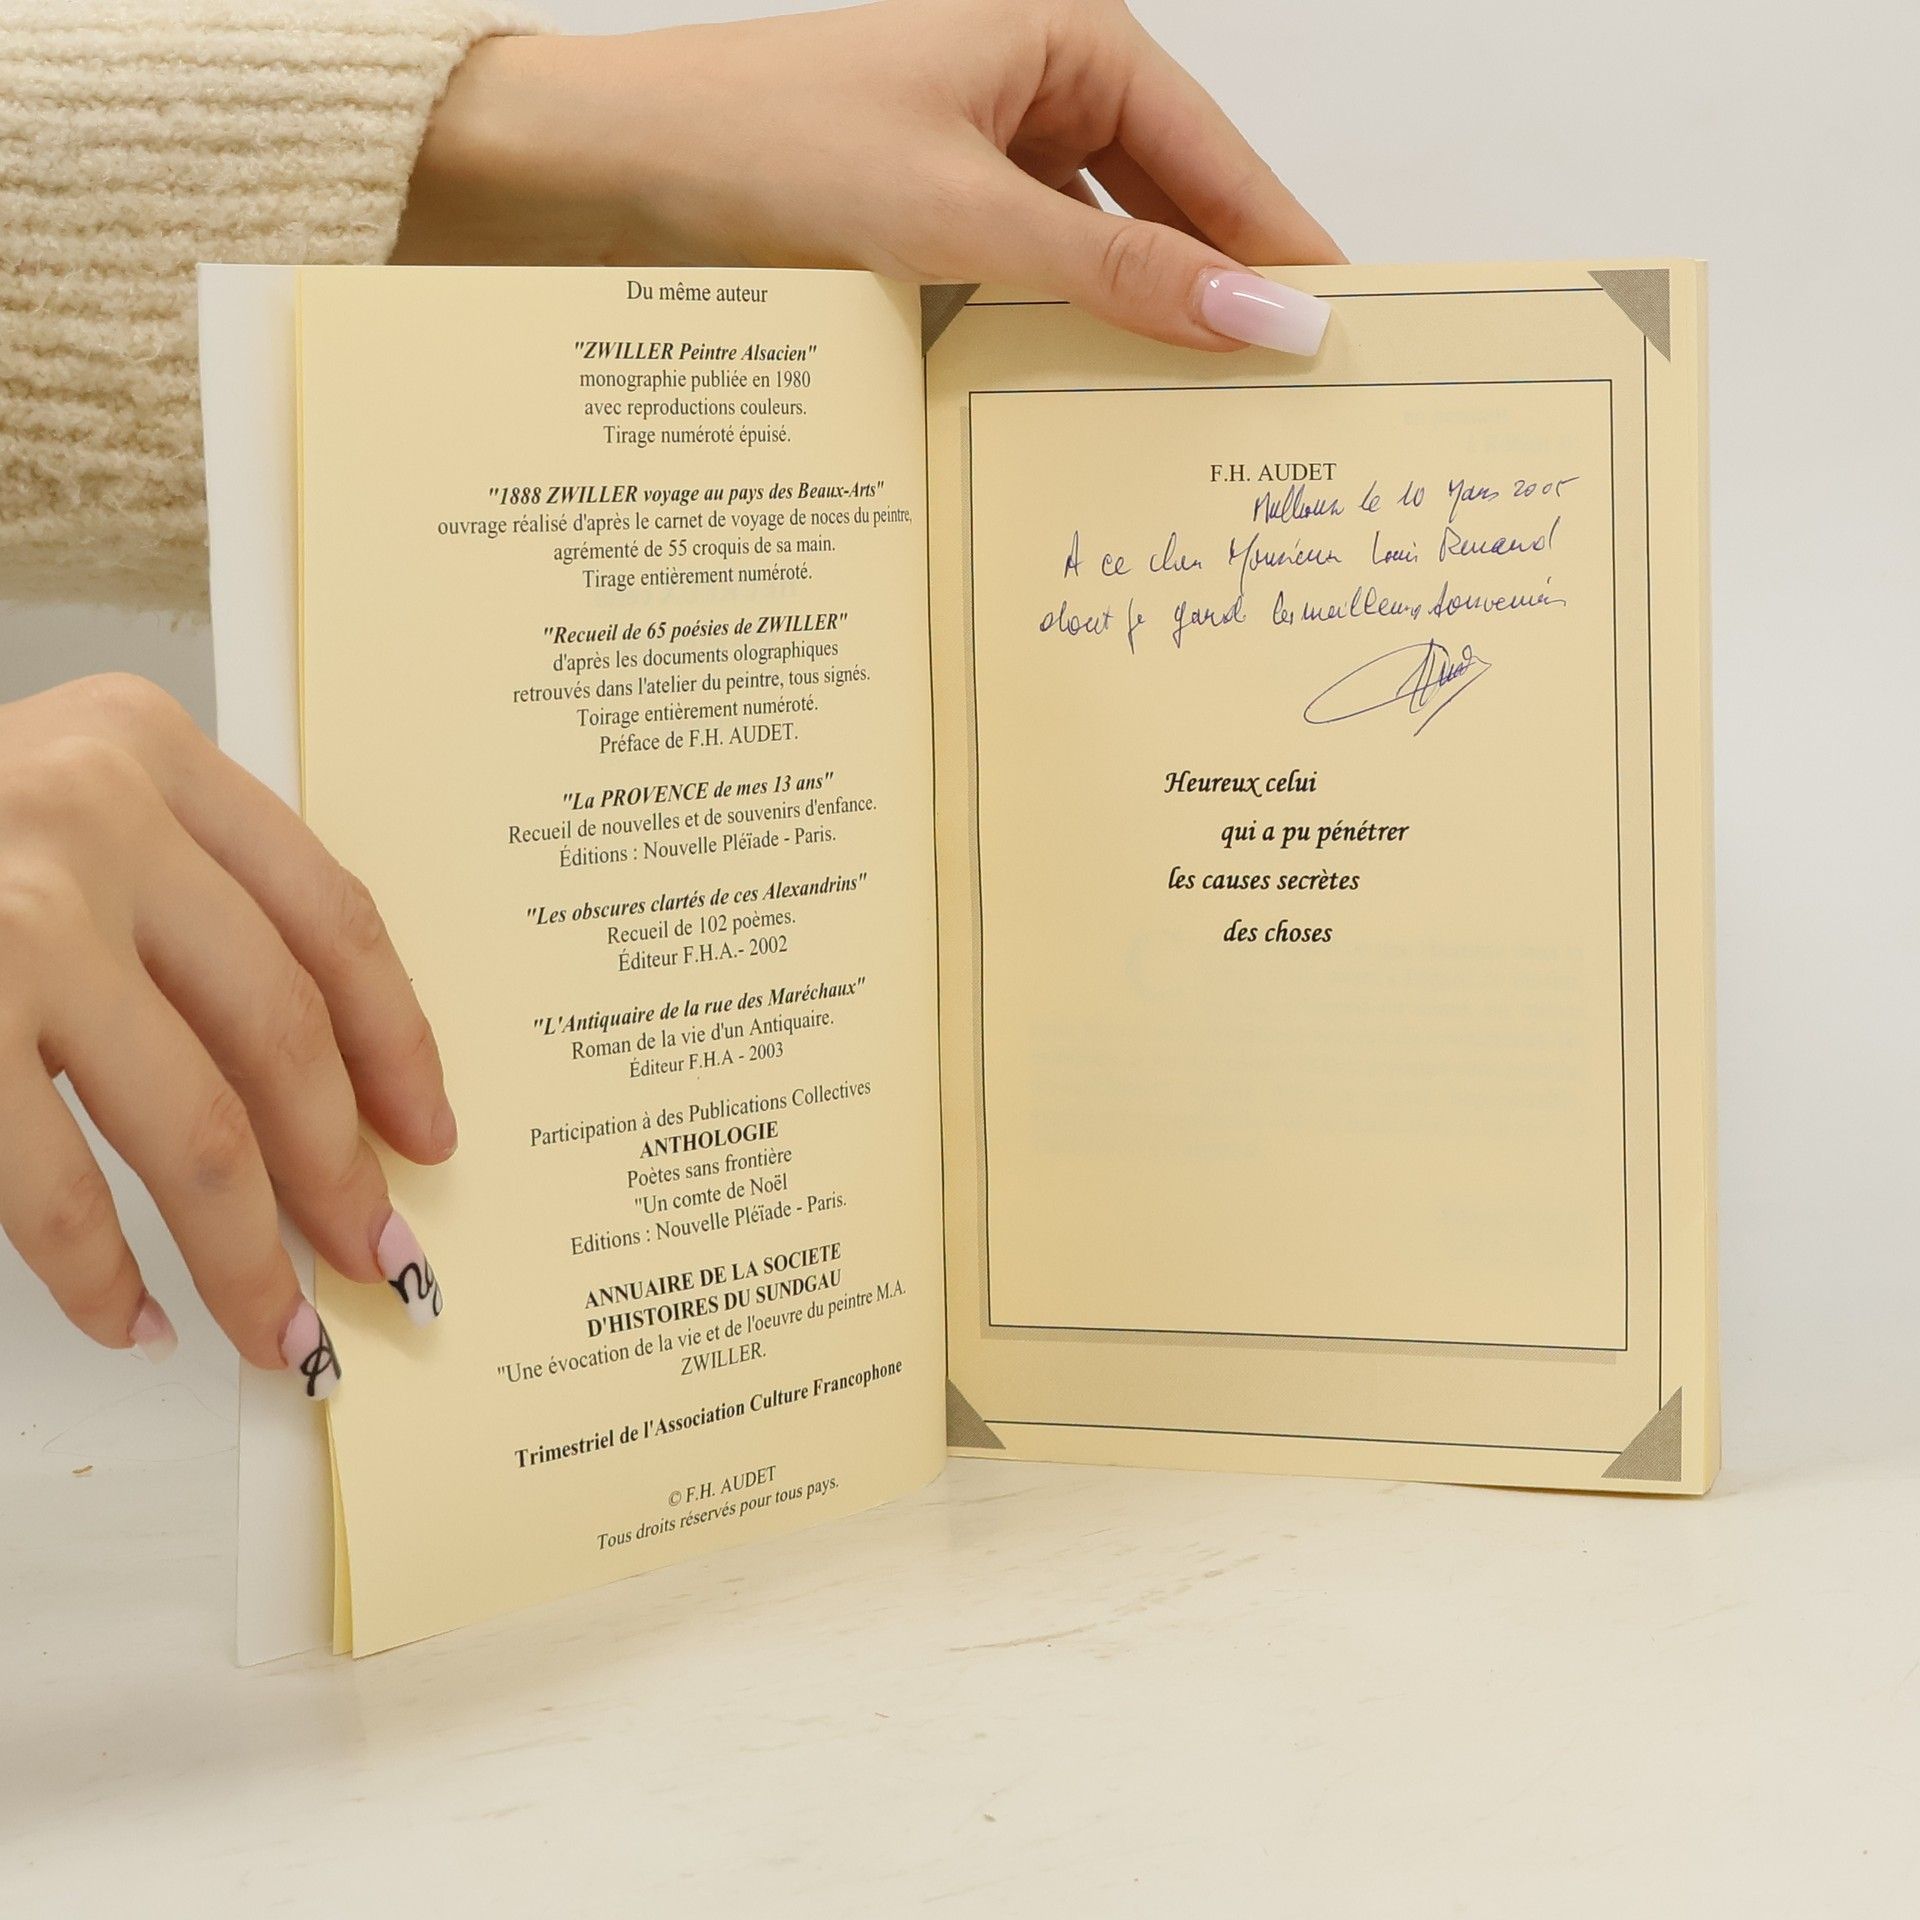 Du même auteur
"ZWILLER Peintre Alsacien"
monographie publiée en 1980
avec reproductions couleurs.
Tirage numéroté épuisé.
"1888 ZWILLER voyage au pays des Beaux-Arts"
ouvrage réalisé d'après le carnet de voyage de noces du peintre,
agrémenté de 55 croquis de sa main.
Tirage entièrement numéroté.
"Recueil de 65 poésies de ZWILLER"
d'après les documents olographiques
retrouvés dans l'atelier du peintre, tous signés.
Toirage entièrement numéroté.
Préface de F.H. AUDET.
"La PROVENCE de mes 13 ans"
Recueil de nouvelles et de souvenirs d'enfance.
Éditions : Nouvelle Pléïade - Paris.
"Les obscures clartés de ces Alexandrins"
Recueil de 102 poèmes.
Éditeur F.H.A.- 2002
"L'Antiquaire de la rue des Maréchaux"
Roman de la vie d'un Antiquaire.
Éditeur F.H.A - 2003
Participation à des Publications Collectives
ANTHOLOGIE
Poètes sans frontière
"Un comte de Noël
Editions : Nouvelle Pléïade - Paris.
ANNUAIRE DE LA SOCIETE
D'HISTOIRES DU SUNDGAU
"Une évocation de la vie et de l'oeuvre du peintre M.A.
ZWILLER.
Trimestriel de l'Association Culture Francophone
© F.H. AUDET
Tous droits réservés pour tous pays.
F.H. AUDET
Mulhouse le 10 Mars 2005
A ce cher Monsieur Louis Renand
dont je garde les meilleurs souvenirs
Heureux celui
qui a pu pénétrer
les causes secrètes
des choses